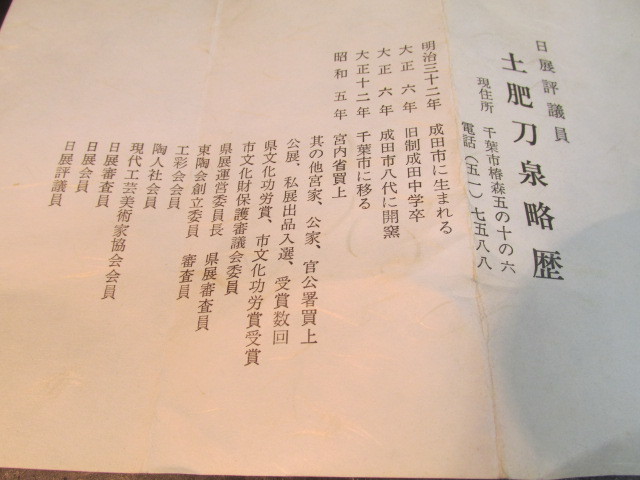 日展評議員
土肥刀泉略歴
現住所 千葉市椿森五の十の六
電話(五一)七五八八
明治三十二年 成田市に生まれる
大正六年 旧制成田中学卒
大正六年 成田市八代に開窯
大正十二年 千葉市に移る
昭和五年 宮内省買上
其の他宮家、公家、官公署買上
公展、私展出品入選、受賞数回
県文化功労賞、市文化功労賞受賞
市文化財保護審議会委員
県展運営委員長 県展審査員
東陶会創立委員 審査員
工彩会会員
陶人社会員
現代工芸美術家協会会員
日展審査員
日展会員
日展評議員